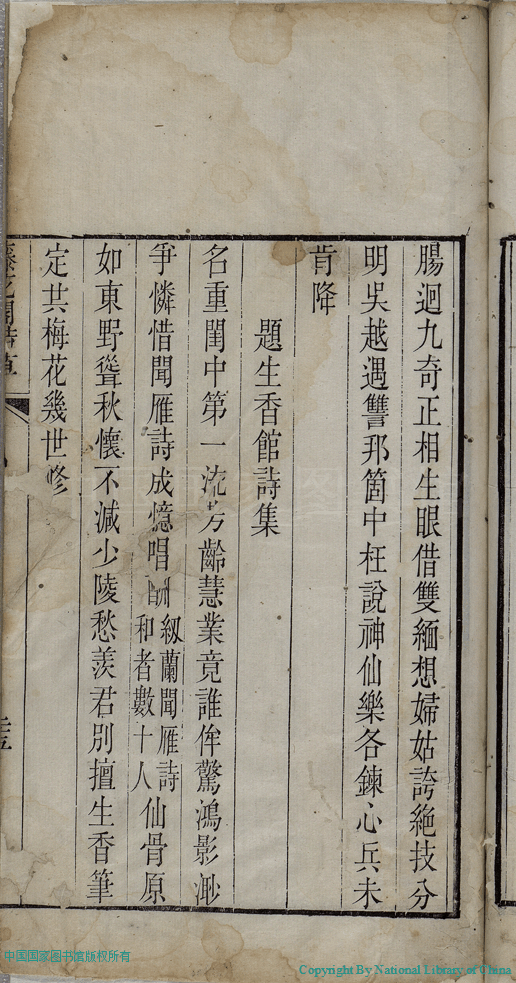 腸迴九奇正相生眼借雙緬想婦姑誇絶技分
明吳越遇讐邦箇中枉說神仙樂各鍊心兵未
肯降
題生香館詩集
名重閨中第一流芳齡慧業竟誰侔驚鴻影渺
爭憐惜聞雁詩成憶唱酬紉蘭聞雁詩和者數十人仙骨原
如東野聳秋懷不減少陵愁羨君別擅生香筆
定共梅花幾世修
中国国家图书馆版权所有
Copyright By National Library of China